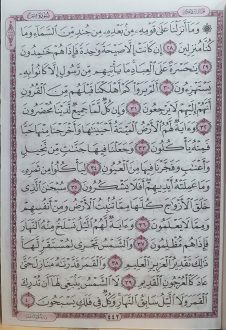 ۞ وَمَآ أَنزَلۡنَا عَلَىٰ قَوۡمِهِۦ مِنۢ بَعۡدِهِۦ مِن جُندٖ مِّنَ ٱلسَّمَآءِ وَمَا
كُنَّا مُنزِلِينَ ٢٨ إِن كَانَتۡ إِلَّا صَيۡحَةٗ وَٰحِدَةٗ فَإِذَا هُمۡ خَٰمِدُونَ
٢٩ يَٰحَسۡرَةً عَلَى ٱلۡعِبَادِۚ مَا يَأۡتِيهِم مِّن رَّسُولٍ إِلَّا كَانُواْ بِهِۦ
يَسۡتَهۡزِءُونَ ٣٠ أَلَمۡ يَرَوۡاْ كَمۡ أَهۡلَكۡنَا قَبۡلَهُم مِّنَ ٱلۡقُرُونِ
أَنَّهُمۡ إِلَيۡهِمۡ لَا يَرۡجِعُونَ ٣١ وَإِن كُلّٞ لَّمَّا جَمِيعٞ لَّدَيۡنَا مُحۡضَرُونَ
٣٢ وَءَايَةٞ لَّهُمُ ٱلۡأَرۡضُ ٱلۡمَيۡتَةُ أَحۡيَيۡنَٰهَا وَأَخۡرَجۡنَا مِنۡهَا حَبّٗا
فَمِنۡهُ يَأۡكُلُونَ ٣٣ وَجَعَلۡنَا فِيهَا جَنَّٰتٖ مِّن نَّخِيلٖ
وَأَعۡنَٰبٖ وَفَجَّرۡنَا فِيهَا مِنَ ٱلۡعُيُونِ ٣٤ لِيَأۡكُلُواْ مِن ثَمَرِهِۦ
وَمَا عَمِلَتۡهُ أَيۡدِيهِمۡۚ أَفَلَا يَشۡكُرُونَ ٣٥ سُبۡحَٰنَ ٱلَّذِي
خَلَقَ ٱلۡأَزۡوَٰجَ كُلَّهَا مِمَّا تُنۢبِتُ ٱلۡأَرۡضُ وَمِنۡ أَنفُسِهِمۡ
وَمِمَّا لَا يَعۡلَمُونَ ٣٦ وَءَايَةٞ لَّهُمُ ٱلَّيۡلُ نَسۡلَخُ مِنۡهُ ٱلنَّهَارَ
فَإِذَا هُم مُّظۡلِمُونَ ٣٧ وَٱلشَّمۡسُ تَجۡرِي لِمُسۡتَقَرّٖ لَّهَاۚ
ذَٰلِكَ تَقۡدِيرُ ٱلۡعَزِيزِ ٱلۡعَلِيمِ ٣٨ وَٱلۡقَمَرَ قَدَّرۡنَٰهُ مَنَازِلَ حَتَّىٰ
عَادَ كَٱلۡعُرۡجُونِ ٱلۡقَدِيمِ ٣٩ لَا ٱلشَّمۡسُ يَنۢبَغِي لَهَآ أَن تُدۡرِكَ
ٱلۡقَمَرَ وَلَا ٱلَّيۡلُ سَابِقُ ٱلنَّهَارِۚ وَكُلّٞ فِي فَلَكٖ يَسۡبَحُونَ ٤٠
٤٤٢